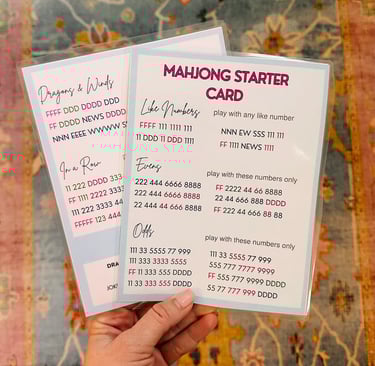 Dragons & Winds
FFFF DDD DDDD DDD
FF DDDD NEWS DDDD
NNN EEEE WWWW S
In a Row
11 222 DDDD 333
FF 1111 2222 3333
111 2222 3333 44
FFFFF 123 444
DRA
JOK
MAHJONG STARTER
CARD
Like Numbers
play with any like number
FFFF 111 1111 111
11 DDD 11 DDD 1111
NNN EW SSS 111 111
FF 1111 NEWS 1111
Evens
play with these numbers only
222 444 6666 8888
222 444 6666 8888
222 44 44 666 8888
FF 2222 44 66 8888
22 44 666 888 DDDD
FF 222 44 666 88 88
Odds
play with these numbers only
111 33 5555 77 999
111 333 3333 5555
FF 11 333 555 DDDD
11 33 333 555 DDDD
111 33 5555 77 999
555 777 7777 9999
FF 555 777 999 DDD
55 77 777 999 DDDD